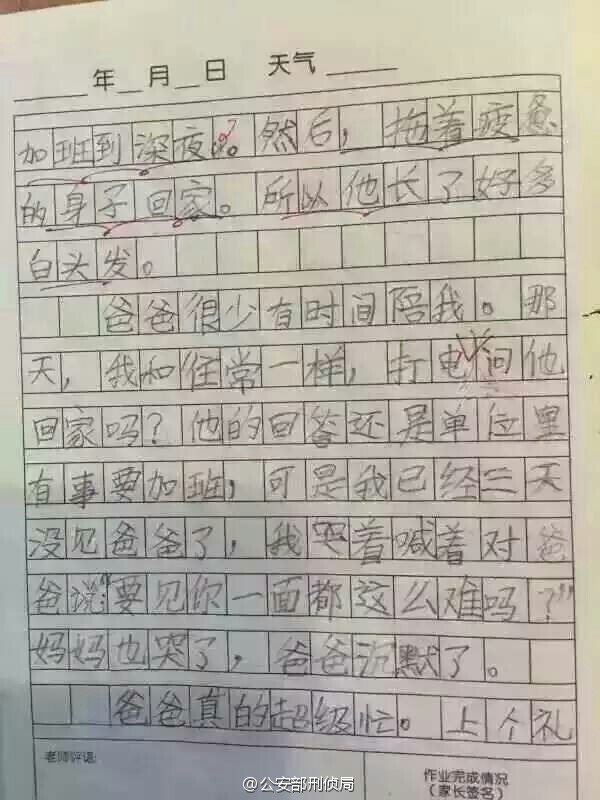 年 月 日 天气
加班到深夜。然后，拖着疲惫
的身子回家。所以他长了好多
白头发。
爸爸很少有时间陪我。那
天，我和往常一样，打电问他
回家吗？他的回答还是单位里
有事要加班，可是我已经三天
没见爸爸了，我哭着喊着对爸
爸说：“要见你一面都这么难吗？”
妈妈也哭了，爸爸沉默了。
爸爸真的超级忙。上个礼
老师评语:
作业完成情况
（家长签名）
@公安部刑侦局